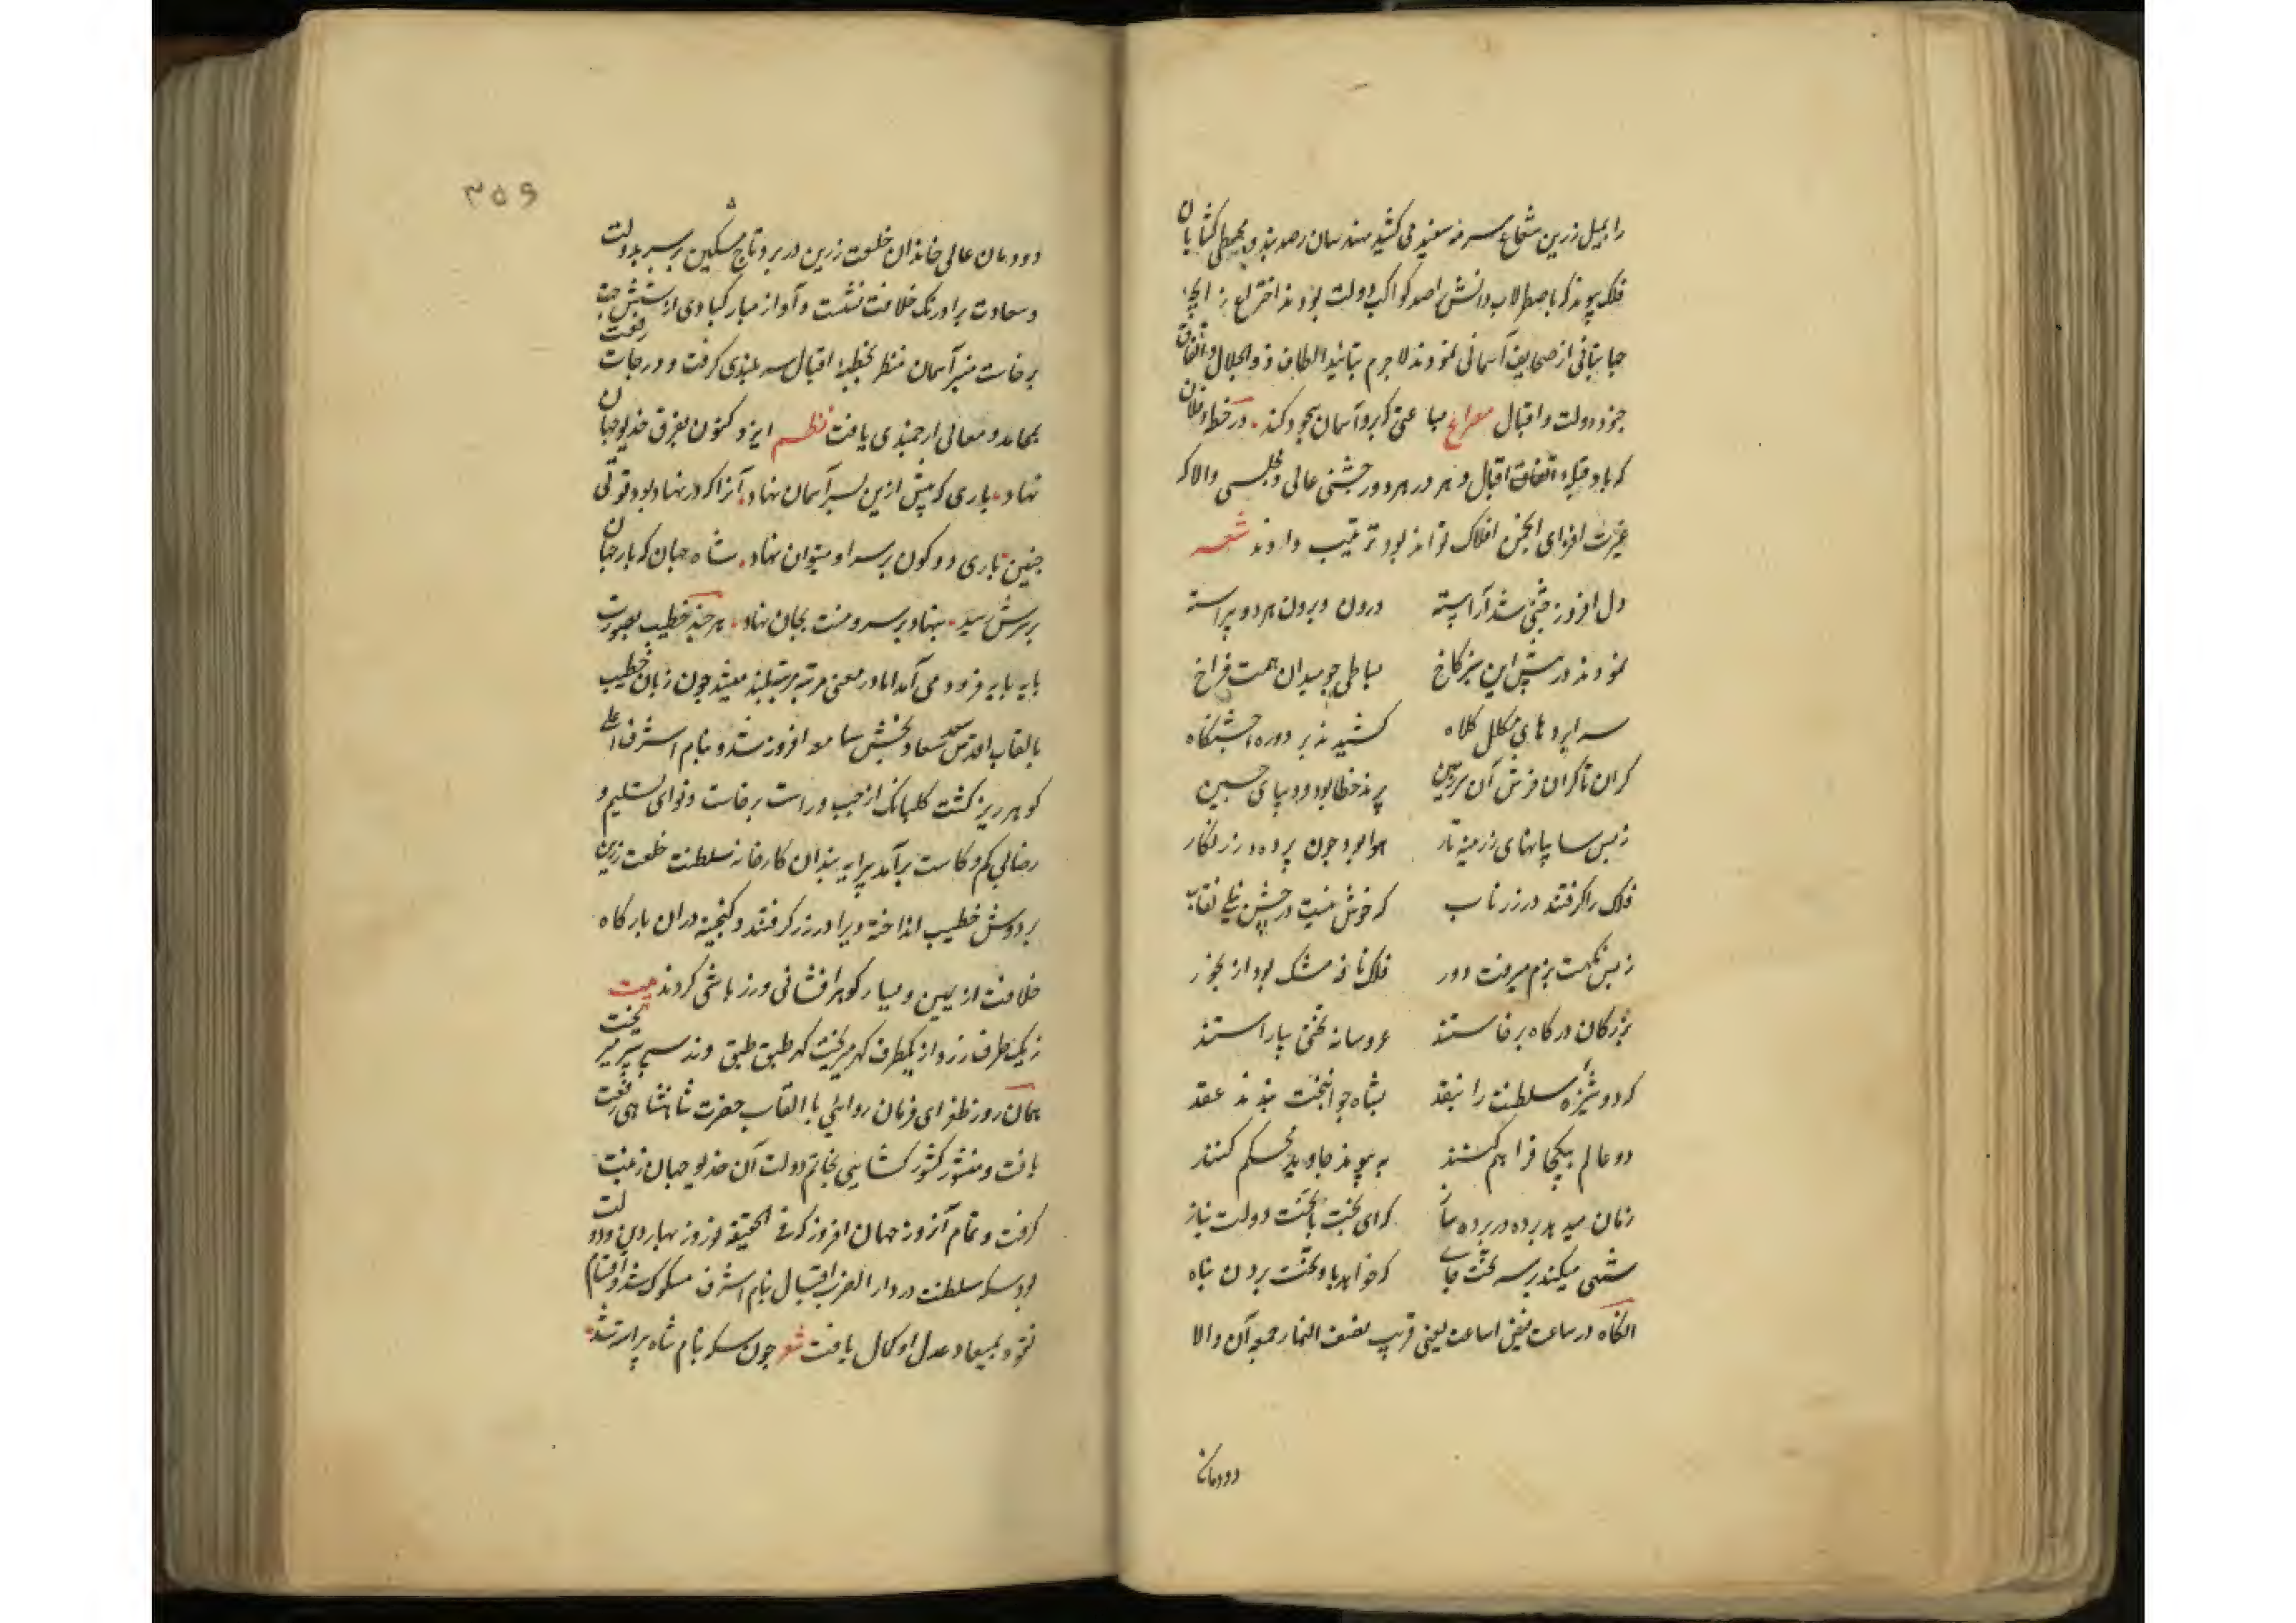 را بمیل زرین شعاع سرمه سفید می کشید مهندسان رصدبند و مجسطی کشایان
فلک پیوند که باصطرلاب دانش راصد کواکب دولت بودند اختراع
جهانبانی از صحایف آسمانی نمودند لاجرم بتائید الطاف ذوالجلال و اتفاق
جنود دولت و اقبال مصراع بساعتی که برو آسمان سجود کند در خطه
که باد قبله اتفاق اقبال و هر در هر دور جشنی عالی و مجلسی والا که
غیرت افزای انجمن افلاک تواند بود ترتیب دادند شعر
دل افروز جشنی شد آراسته درون و برون هر دو پیراسته
نمودند در پیش این سبز کاخ بساطی چو میدان همت فراخ
سراپردهای مکلل کلاه کشیدند بر دوره جشنکاه
کران تا کران فرش آن سرزمین پرند خطا بود و دیبای چین
زبس سایبانهای زرینه تار هوا بود چون پرده زرنکار
فلک را کرفتند در زر ناب که خوش نیست در جشن نیلی نقاب
زبس نکهت بزم میرفت دور فلک نافه مشک بود از بخور
بزرکان درکاه برخاستند عروسانه تختی بیاراستند
که دوشیزه سلطنت را بنقد بشاه جوانبخت بندند عقد
دو عالم بیکجا فراهم کنند به پیوند جاوید محکم کنند
زمان میدهد برده در برده ساز که ای بخت با تخت دولت بناز
شهی میکند بر سر تخت جای که خواهد باو تخت بردن پناه
انکاه در ساعت فیض اساعت یعنی قریب نصف النهار جمعه آن والا
دودمان
۳۵۶
دودمان عالی خاندان خلعت زرین در بر و تاج مشکین بر سر بدولت
و سعادت بر اورنک خلافت نشست و آواز مبارکبادی از شش جهت
برخاست منبر آسمان منظر بخطبه اقبال سربلندی کرفت و درجات رفعت
بمحامد و معالی ارجمندی یافت نظم ایزد کنون بفرق خدیو جهان
نهاد باری که پیش ازین بسر آسمان نهاد آنرا که در نهاد بود قوتی
چنین باری دو کون بر سر او میتوان نهاد شاه جهان که بار جهان
برسرش رسید بنهاد بر سر و منت بجان نهاد هر چند خطیب بصورت
پایه پایه فرود می آمد اما در معنی مرتبه مرتبه بلند میشد چون زبان خطیب
بالقاب اقدس سعادت بخش سامعه افروز شد و بنام اشرف اعلی
کوهر ریز کشت کلبانک از چپ و راست برخاست و نوای تسلیم و
رضا بی کم و کاست برآمد پیرایه بندان کارخانه سلطنت خلعت زرین
بر دوش خطیب انداخته ویرا در زر کرفتند و کنجینه دران بارکاه
خلافت از یمین و یسار کوهر افشانی و زرپاشی کردند بیت
زیک طرف زر و از یکطرف کهر میریخت کهر طبق طبق و زر سپر سپر میریخت
همان روز طغرای فرمان روایی با القاب حضرت شاهنشاهی رفعت
یافت و منشور کشور کشایی بخاتم دولت آن خدیو جهان زینت
کرفت و تمام آنروز جهان افروز که فی الحقیقه نوروز بهار دین و دولت
بود سکه سلطنت در دار الضرب اقبال بنام اشرف مسکوک شد و اقسام
نقود بمیعاد عدل او کمال یافت شعر چون سکه بنام شاه پیراسته شد